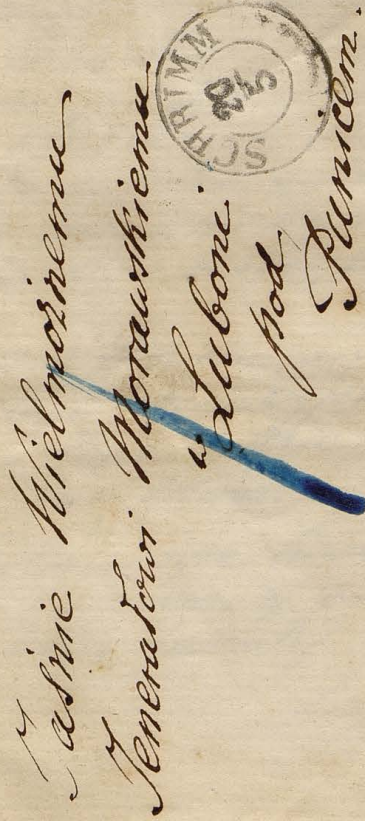 Jaśnie Wielmożnemu
Jenerałowi Morawskiemu
w Luboni
pod
Punicem.
SCHRIMM